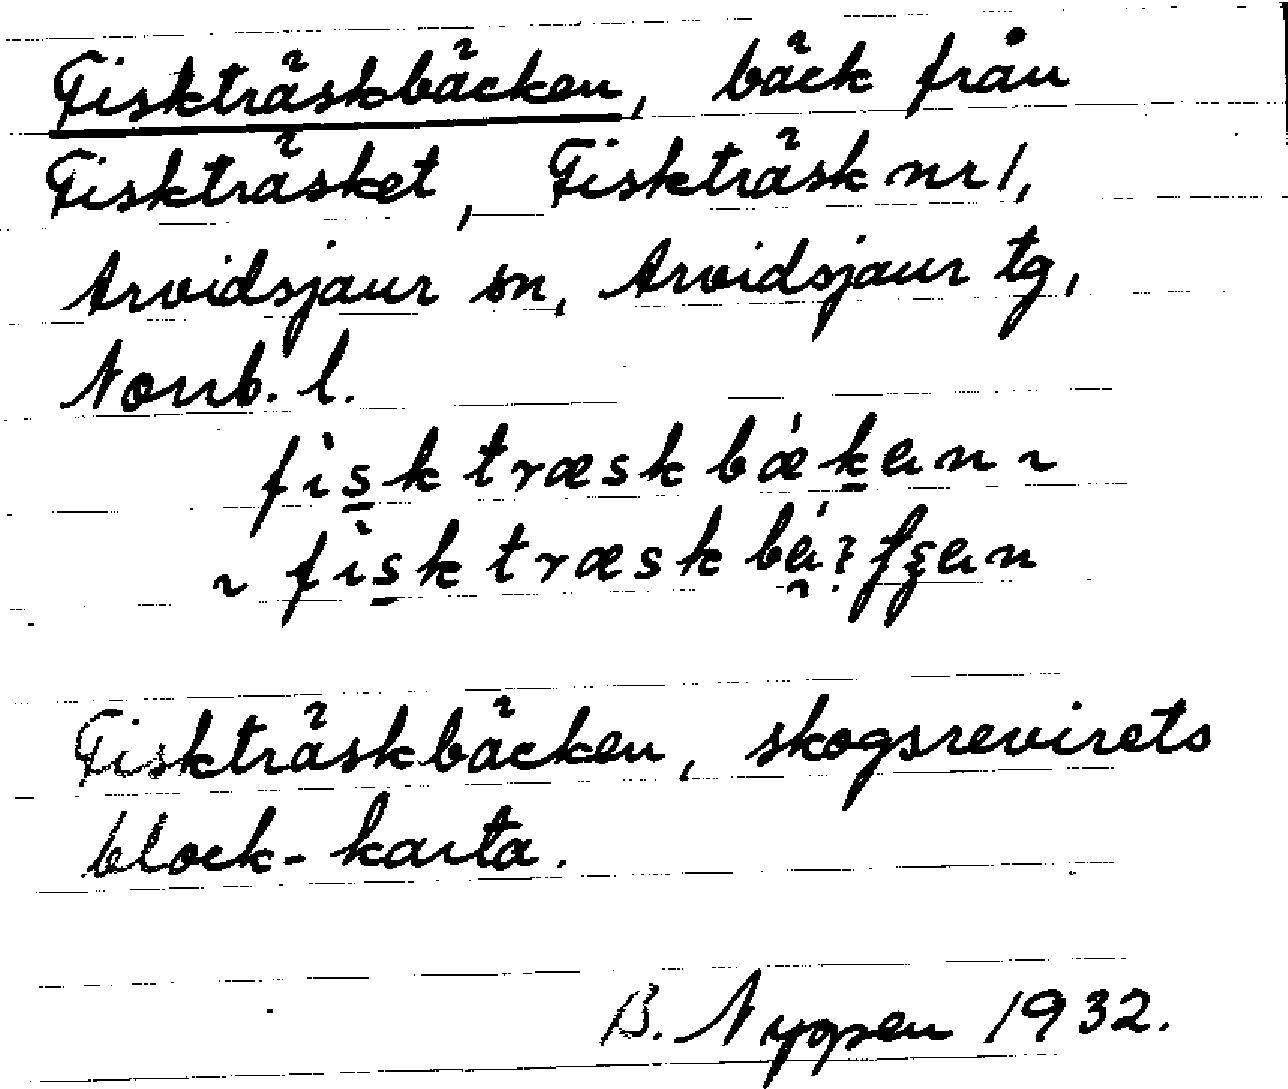 Fiskträskbäcken, bäck från
Fiskträsket, Fiskträsk nr 1,
Arvidsjaur sn, Arvidsjaur tg,
Norrb. l.
Fiskträskbäcken, skogsrevirets
block-karta.
B. Nyppen 1932.